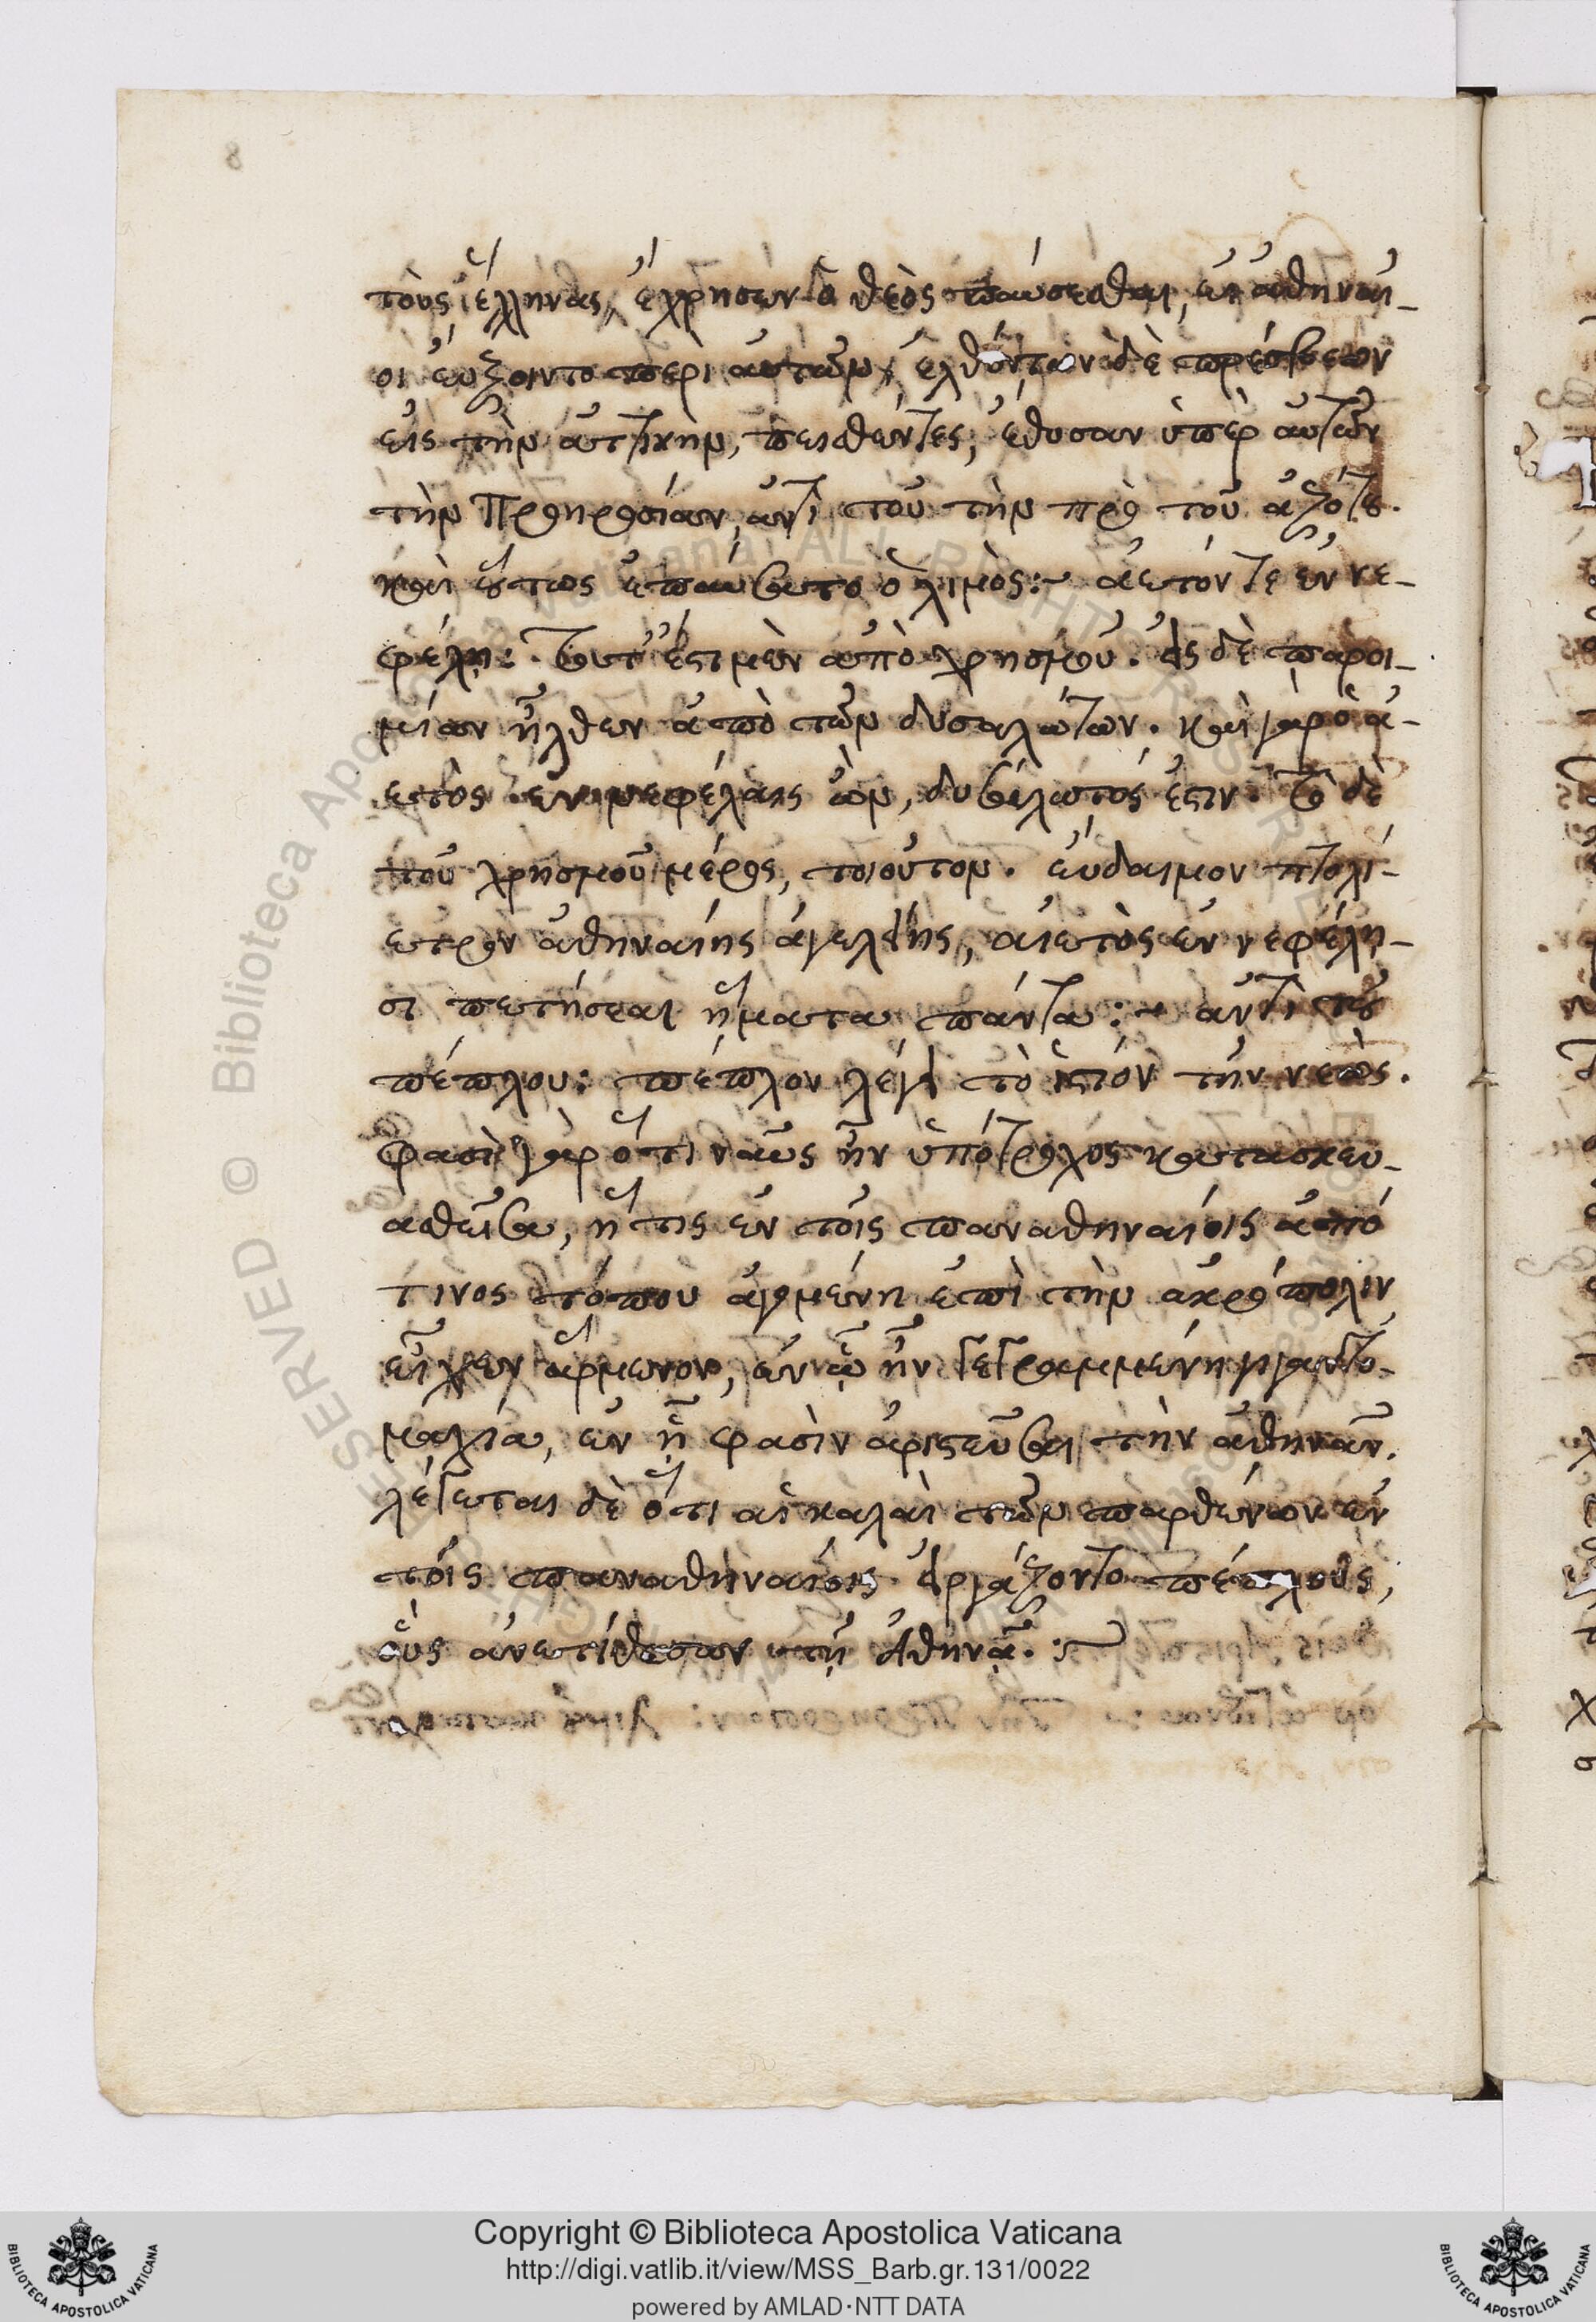 8
τοὺς ἕλληνας, ἔχρησεν ὁ θεὸς παύσεσθαι, εἰ ἀθηναῖ-
οι εὔξοιντο περὶ αὐτῶν, ἐλθόντων δὲ πρέσβεων
εἰς τὴν ἀττικὴν, πεισθέντες, ἔθυσαν ὑπὲρ αὐτῶν
τὴν Προηροσίαν, ἀντὶ τοῦ τὴν πρὸ τοῦ ἀρότου.
καὶ οὕτως ἐπαύσατο ὁ λιμὸς:~ ἀετόν τε ἐν νε-
φέλη: τοῦτ' ἔστι μὲν ἀπὸ χρησμοῦ. εἰς δὲ παροι-
μίαν ἦλθεν ἀπὸ τῶν δυσαλώτων. καὶ γὰρ ὁ ἀ-
ετὸς ἐν νεφέλαις ὢν, δυσάλωτός ἐστιν. τὸ δὲ
τοῦ χρησμοῦ μέρος, τοιοῦτον. εὔδαιμον πτολί-
εθρον ἀθηναίης ἀγελείης, αἰετὸς ἐν νεφέλη-
σι πετήσεαι ἤματα πάντα:~ ἀντὶ τοῦ
πέπλου: πέπλον λέγει τὸ ἱστίον τῆν νεώς.
φασὶ γὰρ ὅτι ναῦς ἦν ὑπότροχος κατασκευ-
ασθεῖσα, ἥ τις ἐν τοῖς παναθηναίοις ἀπό
τινος τόπου ἀγομένη ἐπὶ τὴν ἀκρόπολιν
εἶχεν ἄρμενον, ἐν ᾧ ἦν γεγραμμένη γιγαντο-
μαχία, ἐν ᾗ φασὶν ἀριστεῦσαι τὴν ἀθηνᾶν.
λέγεται δὲ ὅτι αἱ καλαὶ τῶν παρθένων ἐν
τοῖς παναθηναίοις εἰργάζοντο πέπλους,
οὓς ἀνετίθεσαν τῇ Ἀθηνᾷ. :~
Copyright © Biblioteca Apostolica Vaticana
http://digi.vatlib.it/view/MSS_Barb.gr.131/0022
powered by AMLAD·NTT DATA